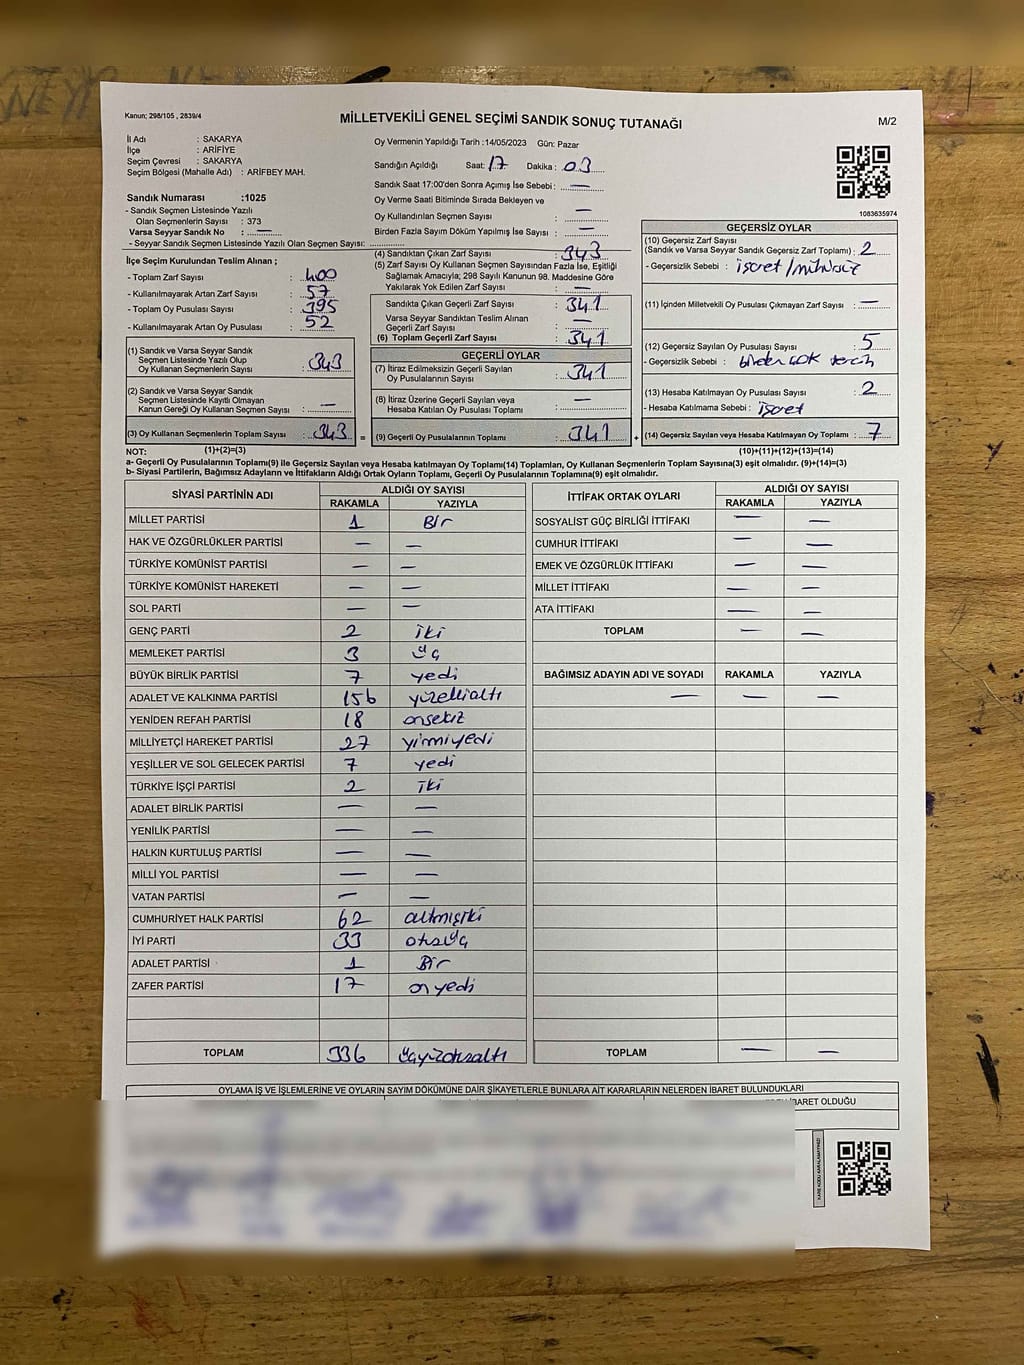 Kanun; 298/105 , 2839/4
MİLLETVEKİLİ GENEL SEÇİMİ SANDIK SONUÇ TUTANAĞI
M/2
İl Adı : SAKARYA
İlçe : ARİFİYE
Seçim Çevresi : SAKARYA
Seçim Bölgesi (Mahalle Adı) : ARİFBEY MAH.
Oy Vermenin Yapıldığı Tarih :14/05/2023 Gün: Pazar
Sandığın Açıldığı Saat: 17 Dakika : 03
Sandık Saat 17:00'den Sonra Açımış İse Sebebi : —
Oy Verme Saati Bitiminde Sırada Bekleyen ve
Oy Kullandırılan Seçmen Sayısı : —
Birden Fazla Sayım Döküm Yapılmış İse Sayısı : —
Sandık Numarası :1025
- Sandık Seçmen Listesinde Yazılı
Olan Seçmenlerin Sayısı : 373
Varsa Seyyar Sandık No : —
- Seyyar Sandık Seçmen Listesinde Yazılı Olan Seçmen Sayısı:
1083635974
İlçe Seçim Kurulundan Teslim Alınan ;
- Toplam Zarf Sayısı : 400
- Kullanılmayarak Artan Zarf Sayısı : 57
- Toplam Oy Pusulası Sayısı : 395
- Kullanılmayarak Artan Oy Pusulası : 52
(1) Sandık ve Varsa Seyyar Sandık
Seçmen Listesinde Yazılı Olup
Oy Kullanan Seçmenlerin Sayısı : 343
(2) Sandık ve Varsa Seyyar Sandık
Seçmen Listesinde Kayıtlı Olmayan
Kanun Gereği Oy Kullanan Seçmen Sayısı : —
(3) Oy Kullanan Seçmenlerin Toplam Sayısı : 343
(4) Sandıktan Çıkan Zarf Sayısı : 343
(5) Zarf Sayısı Oy Kullanan Seçmen Sayısından Fazla İse, Eşitliği
Sağlamak Amacıyla; 298 Sayılı Kanunun 98. Maddesine Göre
Yakılarak Yok Edilen Zarf Sayısı : —
Sandıkta Çıkan Geçerli Zarf Sayısı : 341
Varsa Seyyar Sandıktan Teslim Alınan
Geçerli Zarf Sayısı : —
(6) Toplam Geçerli Zarf Sayısı : 341
GEÇERLİ OYLAR
(7) İtiraz Edilmeksizin Geçerli Sayılan
Oy Pusulalarının Sayısı : 341
(8) İtiraz Üzerine Geçerli Sayılan veya
Hesaba Katılan Oy Pusulası Toplamı : —
= (9) Geçerli Oy Pusulalarının Toplamı : 341
GEÇERSİZ OYLAR
(10) Geçersiz Zarf Sayısı
(Sandık ve Varsa Seyyar Sandık Geçersiz Zarf Toplamı) : 2
- Geçersizlik Sebebi : işaret/mühürsüz
(11) İçinden Milletvekili Oy Pusulası Çıkmayan Zarf Sayısı : —
(12) Geçersiz Sayılan Oy Pusulası Sayısı : 5
- Geçersizlik Sebebi : birden çok tercih
(13) Hesaba Katılmayan Oy Pusulası Sayısı : 2
- Hesaba Katılmama Sebebi : işaret
+ (14) Geçersiz Sayılan veya Hesaba Katılmayan Oy Toplamı : 7
NOT: (1)+(2)=(3) (10)+(11)+(12)+(13)=(14)
a- Geçerli Oy Pusulalarının Toplamı(9) ile Geçersiz Sayılan veya Hesaba katılmayan Oy Toplamı(14) Toplamları, Oy Kullanan Seçmenlerin Toplam Sayısına(3) eşit olmalıdır. (9)+(14)=(3)
b- Siyasi Partilerin, Bağımsız Adayların ve İttifakların Aldığı Ortak Oyların Toplamı, Geçerli Oy Pusulalarının Toplamına(9) eşit olmalıdır.
SİYASİ PARTİNİN ADI ALDIĞI OY SAYISI
RAKAMLA YAZIYLA
MİLLET PARTİSİ 1 Bir
HAK VE ÖZGÜRLÜKLER PARTİSİ — —
TÜRKİYE KOMÜNİST PARTİSİ — —
TÜRKİYE KOMÜNİST HAREKETİ — —
SOL PARTİ — —
GENÇ PARTİ 2 iki
MEMLEKET PARTİSİ 3 üç
BÜYÜK BİRLİK PARTİSİ 7 yedi
ADALET VE KALKINMA PARTİSİ 156 yüzelialtı
YENİDEN REFAH PARTİSİ 18 onsekiz
MİLLİYETÇİ HAREKET PARTİSİ 27 yirmiyedi
YEŞİLLER VE SOL GELECEK PARTİSİ 7 yedi
TÜRKİYE İŞÇİ PARTİSİ 2 iki
ADALET BİRLİK PARTİSİ — —
YENİLİK PARTİSİ — —
HALKIN KURTULUŞ PARTİSİ — —
MİLLİ YOL PARTİSİ — —
VATAN PARTİSİ — —
CUMHURİYET HALK PARTİSİ 62 altmışiki
İYİ PARTİ 33 otuzüç
ADALET PARTİSİ 1 Bir
ZAFER PARTİSİ 17 onyedi
TOPLAM 336 üçyüzotuzaltı
İTTİFAK ORTAK OYLARI ALDIĞI OY SAYISI
RAKAMLA YAZIYLA
SOSYALİST GÜÇ BİRLİĞİ İTTİFAKI — —
CUMHUR İTTİFAKI — —
EMEK VE ÖZGÜRLÜK İTTİFAKI — —
MİLLET İTTİFAKI — —
ATA İTTİFAKI — —
TOPLAM — —
BAĞIMSIZ ADAYIN ADI VE SOYADI RAKAMLA YAZIYLA
— — —
TOPLAM — —
OYLAMA İŞ VE İŞLEMLERİNE VE OYLARIN SAYIM DÖKÜMÜNE DAİR ŞİKAYETLERLE BUNLARA AİT KARARLARIN NELERDEN İBARET BULUNDUKLARI
İBARET OLDUĞU